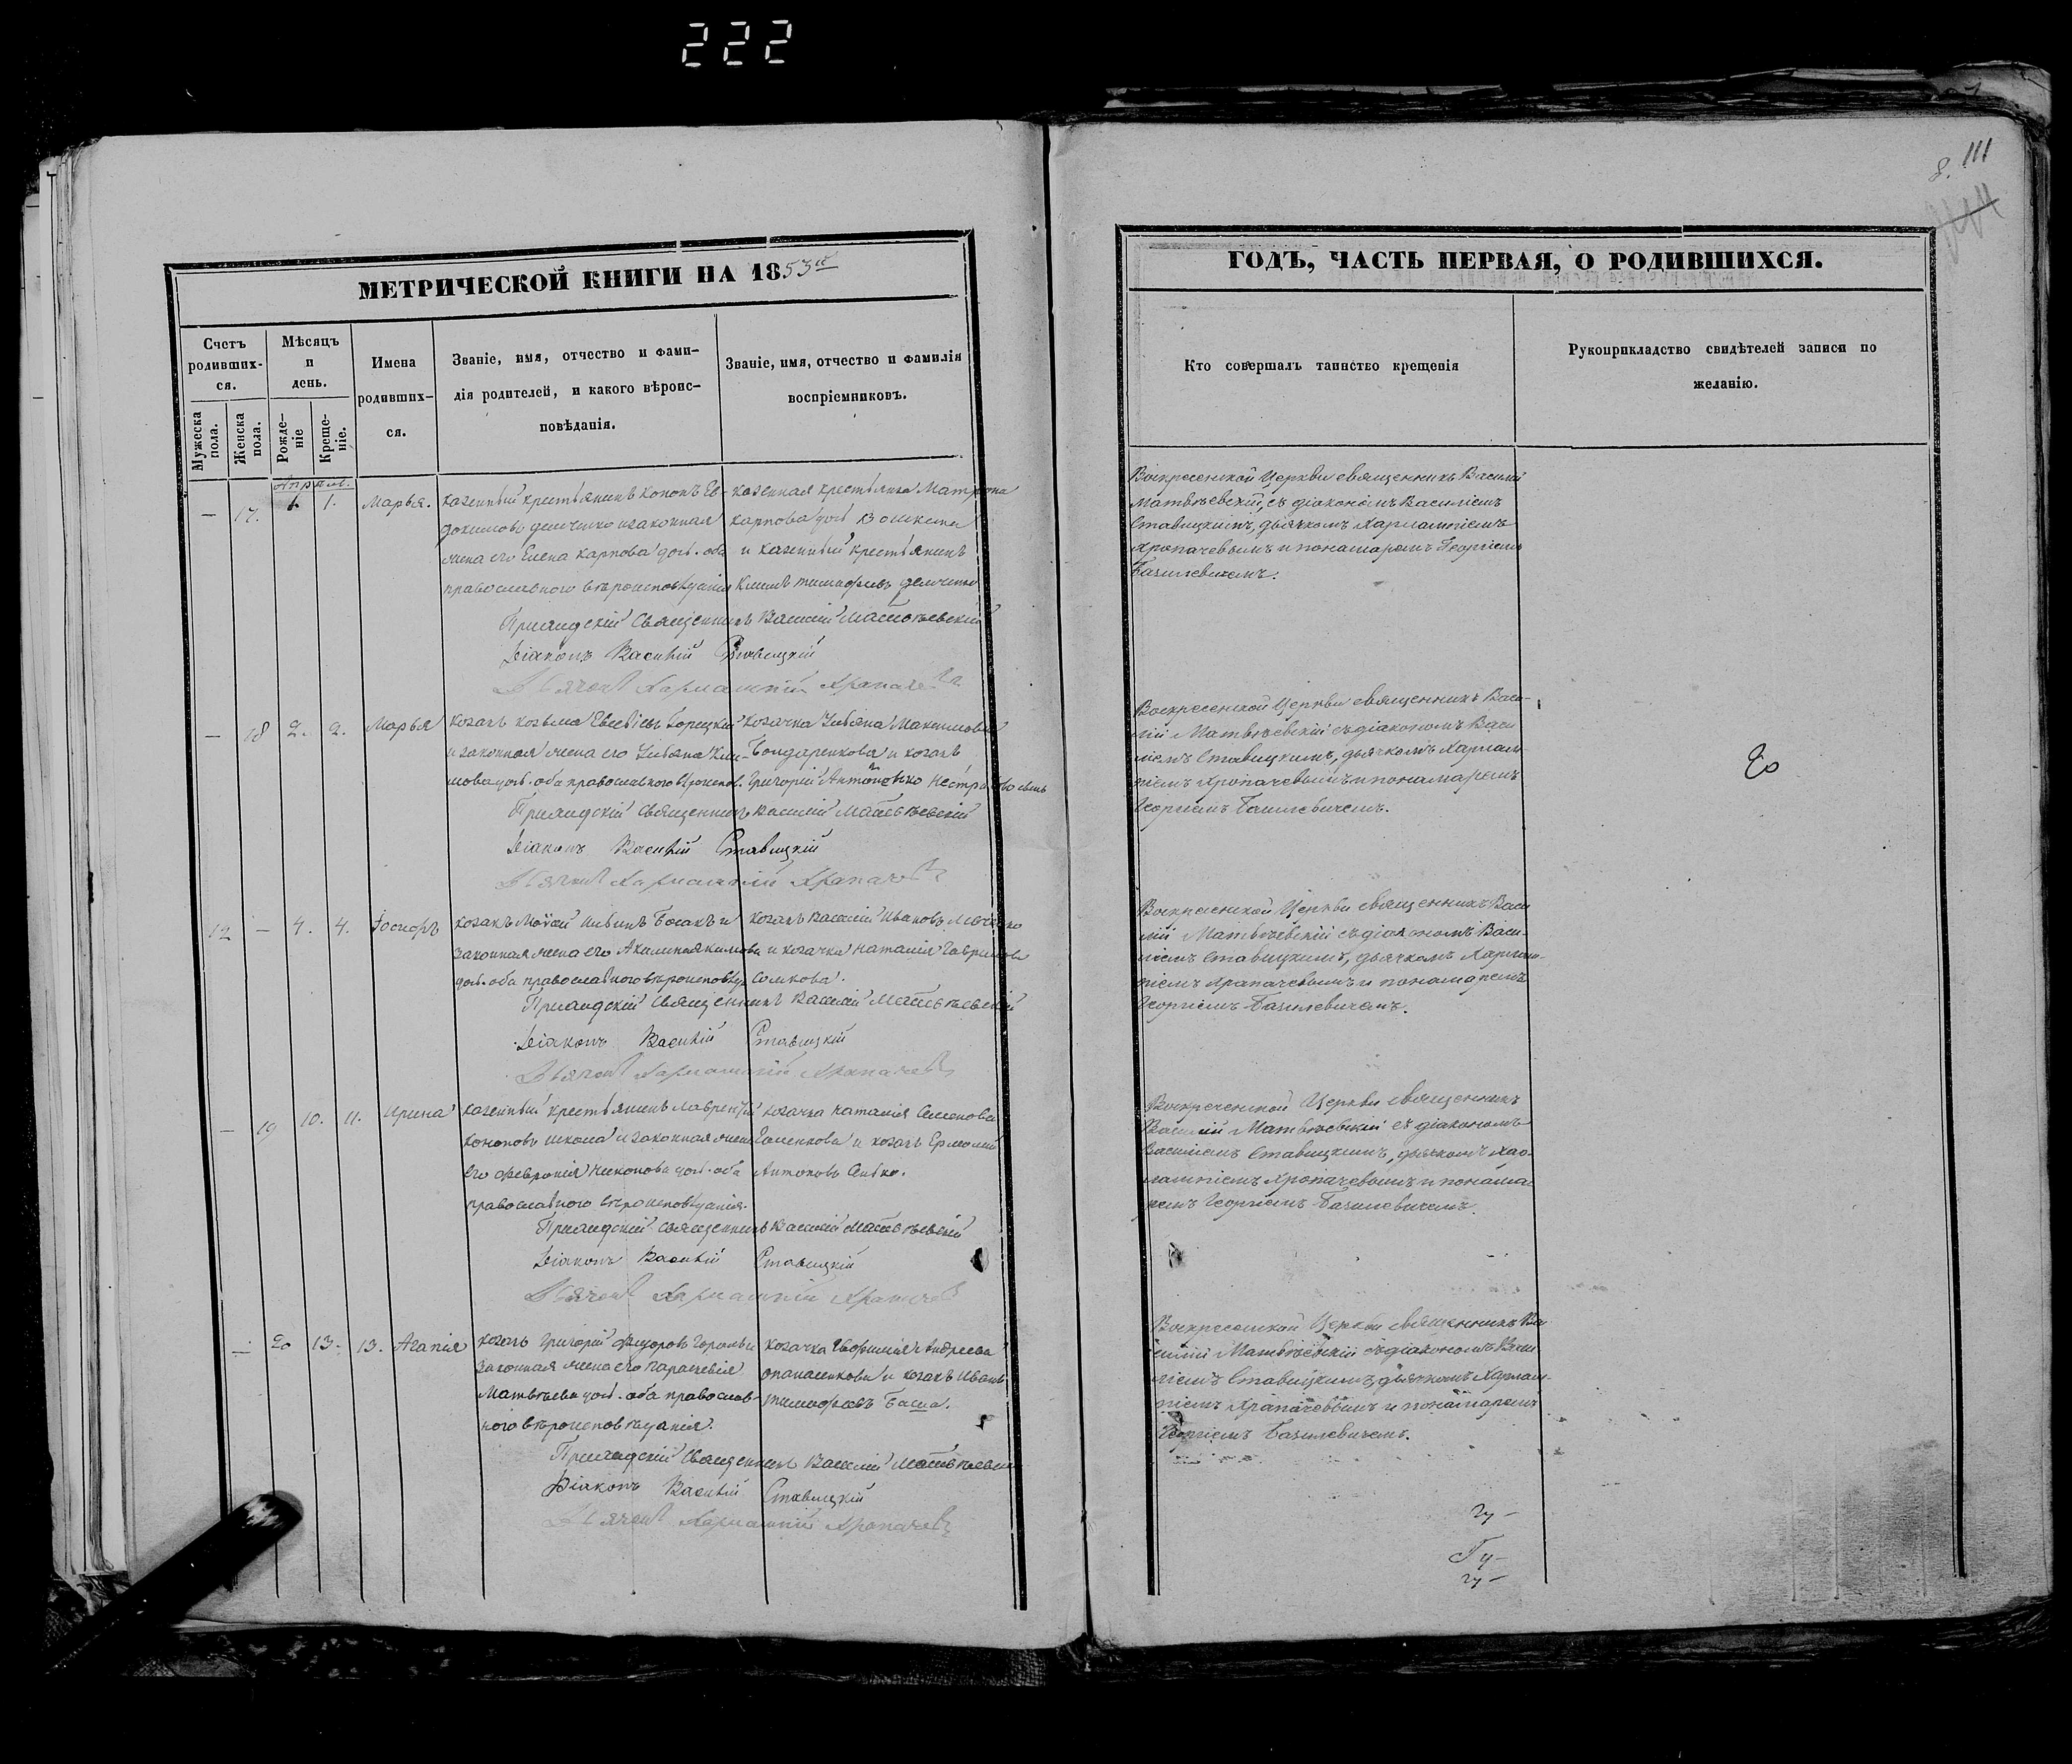 222
8. 111
МЕТРИЧЕСКОЙ КНИГИ НА 1853й
ГОДЪ, ЧАСТЬ ПЕРВАЯ, О РОДИВШИХСЯ.
Счетъ родивших-ся.
Мужеска пола.
Женска пола.
Мѣсяцъ и день.
Рожде-ніе
Креще-ніе.
Имена родивших-ся.
Званіе, имя, отчество и фами-
лія родителей, и какого вѣроис-
повѣданія.
Званіе, имя, отчество и фамилія
воспріемниковъ.
Кто совершалъ таинство крещенія
Рукоприкладство свидѣтелей записи по
желанію.
Апрѣл.
— 17. 1. 1. Марья.
казенный крестьянинъ Кононъ Ев-
докимовъ и законная
жена его Елена Карпова доч. оба
православного вѣроисповѣданія
казенная крестьянка Матрона
Карпова доч.
и казенный крестьянинъ
Климъ Тимофѣевъ
Воскресенской Церкви священникъ Василій
Матвѣевскій, съ діакономъ Василіемъ
Ставицкимъ, дьячкомъ Харлампіемъ
Хропачевымъ и понамаремъ Георгіемъ
Базилевичемъ.
Приходскій Священникъ Василій Матвѣевскій
Діаконъ Василій Ставицкій
Дьячокъ Харлампій Хропачевъ
— 18 2. 2. Марья
Козакъ Козьма Евсевіевъ Горецкій
и законная жена его Ульяна Кли-
мова доч. оба православного вѣроиспов.
козачка Ульяна Максимова
Бондаренкова и козакъ
Григорій
Воскресенской Церкви священникъ Васи-
лій Матвѣевскій съ діакономъ Васи
ліемъ Ставицкимъ, дьячкомъ Харлам-
піемъ Хропачевымъ и понамаремъ
Георгіемъ Базилевичемъ.
20
Приходскій Священникъ Василій Матвѣевскій
Діаконъ Василій Ставицкій
Дьячокъ Харлампій Хропачевъ
12 — 4. 4. Іосифъ
козакъ Босакъ и
законная жена его Акимова
доч. оба православного вѣроисповѣд
козакъ Василій Ивановъ
и козачка Наталія Гаврилова
Сомкова.
Воскресенской Церкви священникъ Васи
лій Матвѣевскій съ діакономъ Васи-
ліемъ Ставицкимъ, дьячкомъ Харлам-
піемъ Хропачевымъ и понамаремъ
Георгіемъ Базилевичемъ.
Приходскій Священникъ Василій Матвѣевскій
Діаконъ Василій Ставицкій
Дьячокъ Харлампій Хропачевъ
— 19 10. 11. Ирина
казенный крестьянинъ Лаврентій
Кононовъ Школа и законная жена
его Февронія Никонова доч. оба
православного вѣроисповѣданія.
козачка Наталія Семенова
и козакъ Ермолай
Антоновъ
Воскресенской Церкви священникъ
Василій Матвѣевскій съ діакономъ
Василіемъ Ставицкимъ, дьячкомъ Хар-
лампіемъ Хропачевымъ и понама-
ремъ Георгіемъ Базилевичемъ.
Приходскій Священникъ Василій Матвѣевскій
Діаконъ Василій Ставицкій
Дьячокъ Харлампій Хропачевъ
— 20 13. 13. Агапія
козакъ Григорій Федоровъ
законная жена его Параскевія
Матвѣева доч. оба православ-
ного вѣроисповѣданія.
козачка Евфимія Андреева
Опанасенкова и козакъ Иванъ
Тимофѣевъ Баша.
Воскресенской Церкви священникъ Ва
силій Матвѣевскій съ діакономъ Васи
ліемъ Ставицкимъ, дьячкомъ Харлам-
піемъ Хропачевымъ и понамаремъ
Георгіемъ Базилевичемъ.
Приходскій Священникъ Василій Матвѣевскій
Діаконъ Василій Ставицкій
Дьячокъ Харлампій Хропачевъ